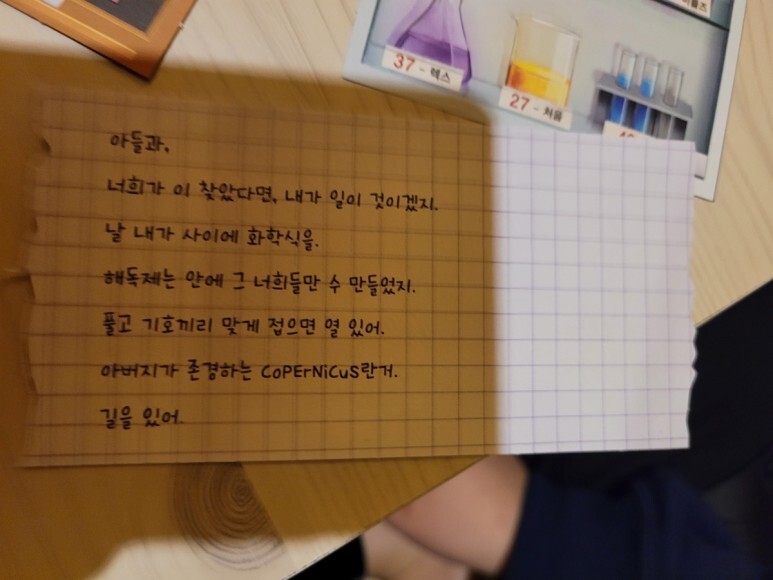 37 - 렉스
27 - 처음
아들과,
너희가 이 찾았다면, 내가 일이 것이겠지.
날 내가 사이에 화학식을.
해독제는 안에 그 너희들만 수 만들었지.
풀고 기호끼리 맞게 접으면 열 있어.
아버지가 존경하는 COPErNiCuS란거.
길을 있어.